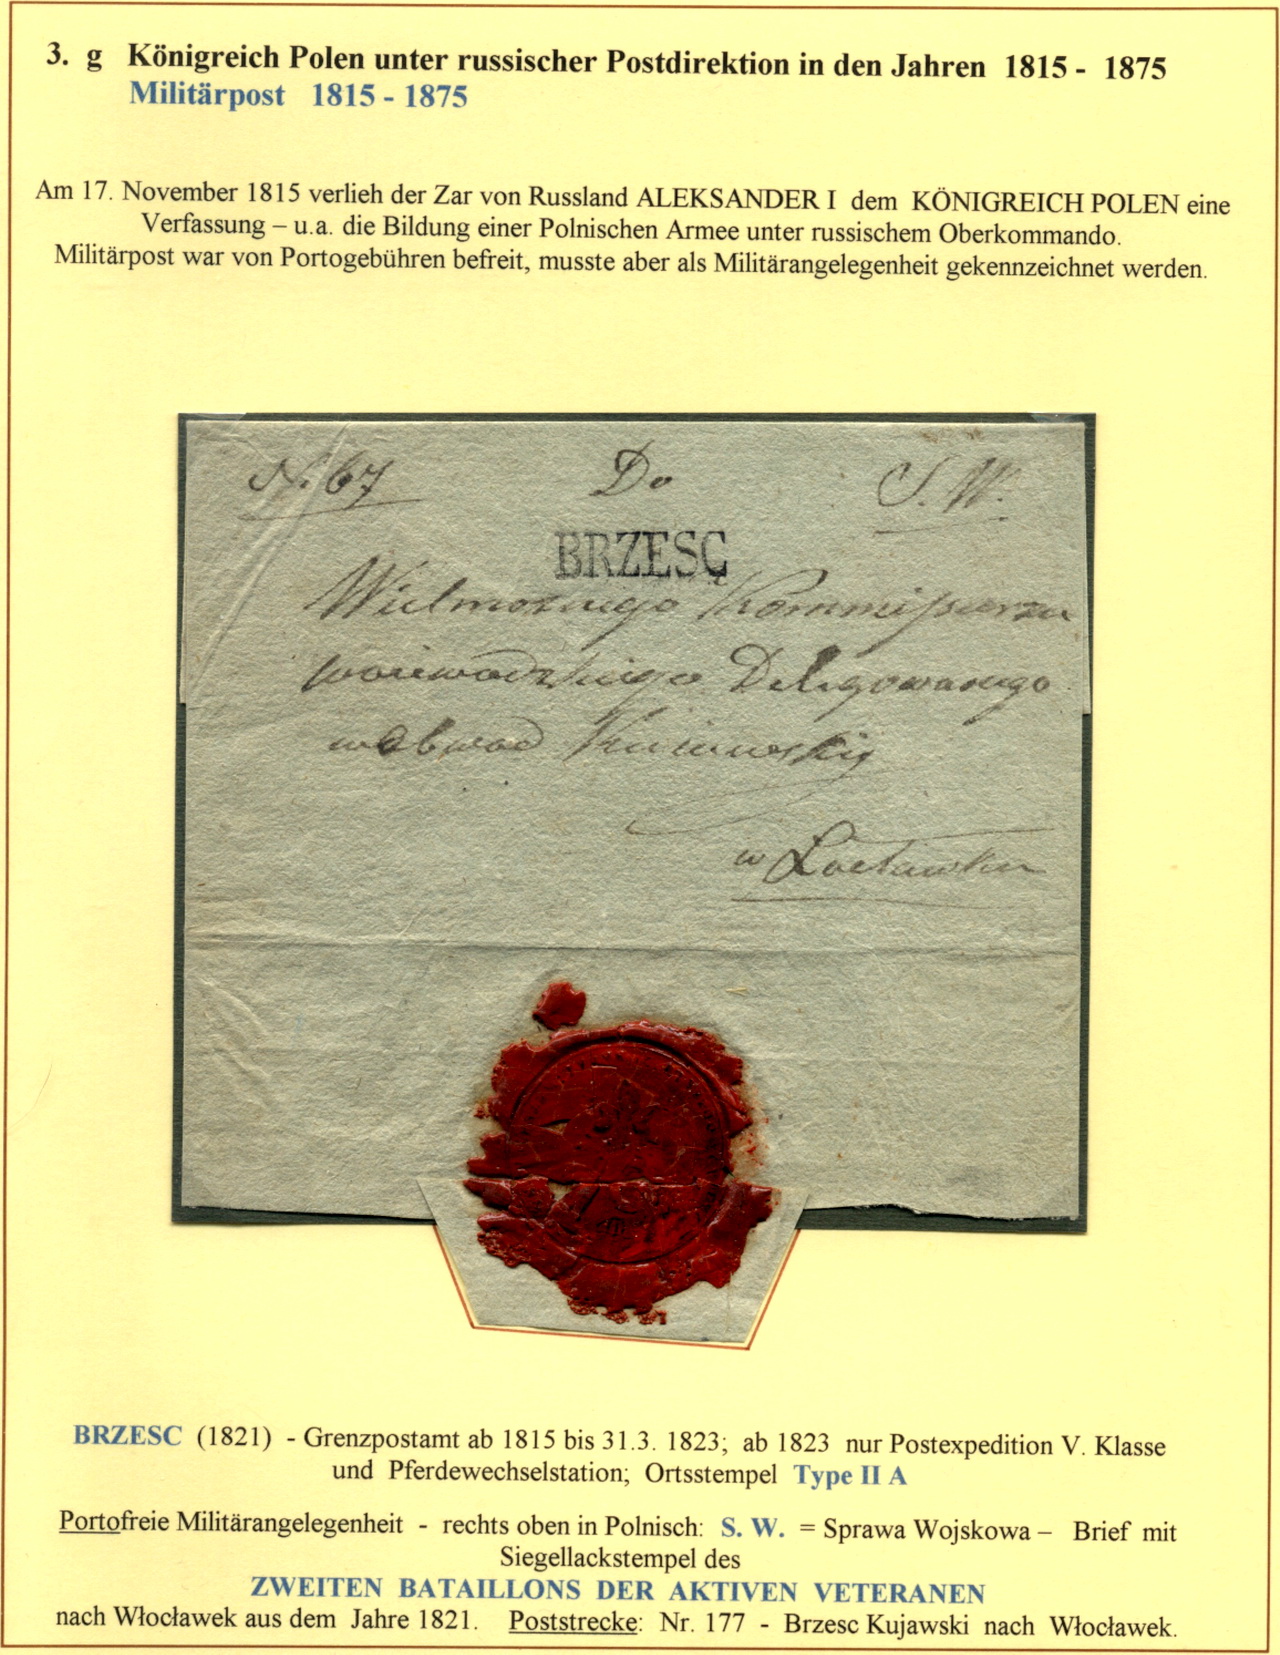 3. g Königreich Polen unter russischer Postdirektion in den Jahren 1815 - 1875
Militärpost 1815 - 1875
Am 17. November 1815 verlieh der Zar von Russland ALEKSANDER I dem KÖNIGREICH POLEN eine
Verfassung – u.a. die Bildung einer Polnischen Armee unter russischem Oberkommando.
Militärpost war von Portogebühren befreit, musste aber als Militärangelegenheit gekennzeichnet werden.
N. 67 Do S. W.
BRZESC
Wielmoznego Kommissarza
woiewodzkiego Delegowanego
w Obwod Kuiawski
w Łocławku
BRZESC (1821) - Grenzpostamt ab 1815 bis 31.3. 1823; ab 1823 nur Postexpedition V. Klasse
und Pferdewechselstation; Ortsstempel Type II A
Portofreie Militärangelegenheit - rechts oben in Polnisch: S. W. = Sprawa Wojskowa – Brief mit
Siegellackstempel des
ZWEITEN BATAILLONS DER AKTIVEN VETERANEN
nach Włocławek aus dem Jahre 1821. Poststrecke: Nr. 177 - Brzesc Kujawski nach Włocławek.